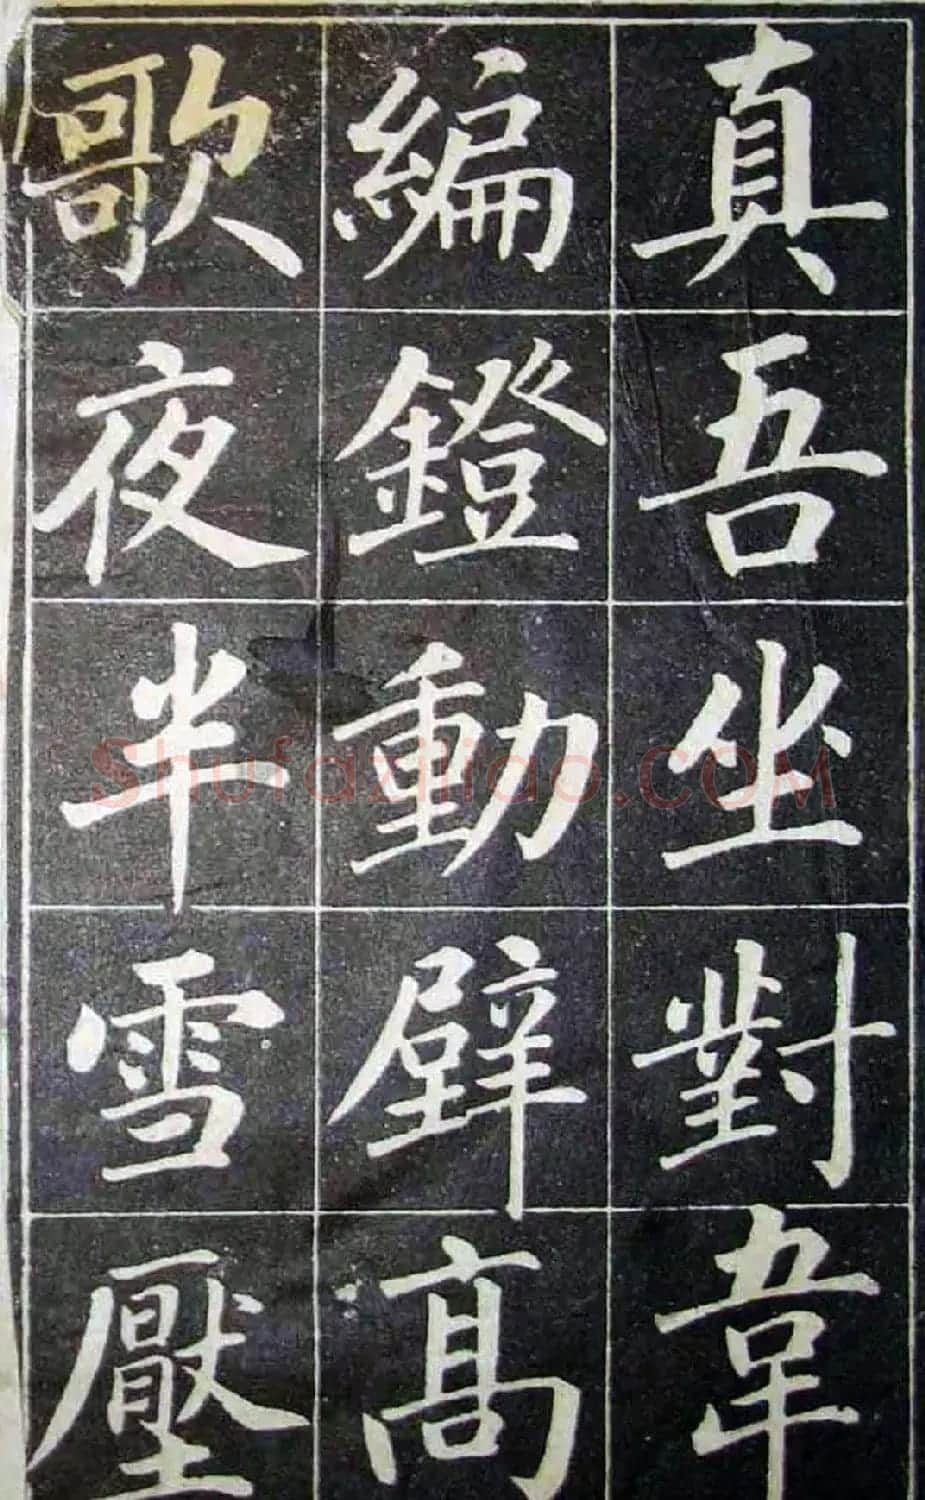 真吾坐對韋
編鐙動壁高
歌夜半雪壓
Shufaziliao.COM